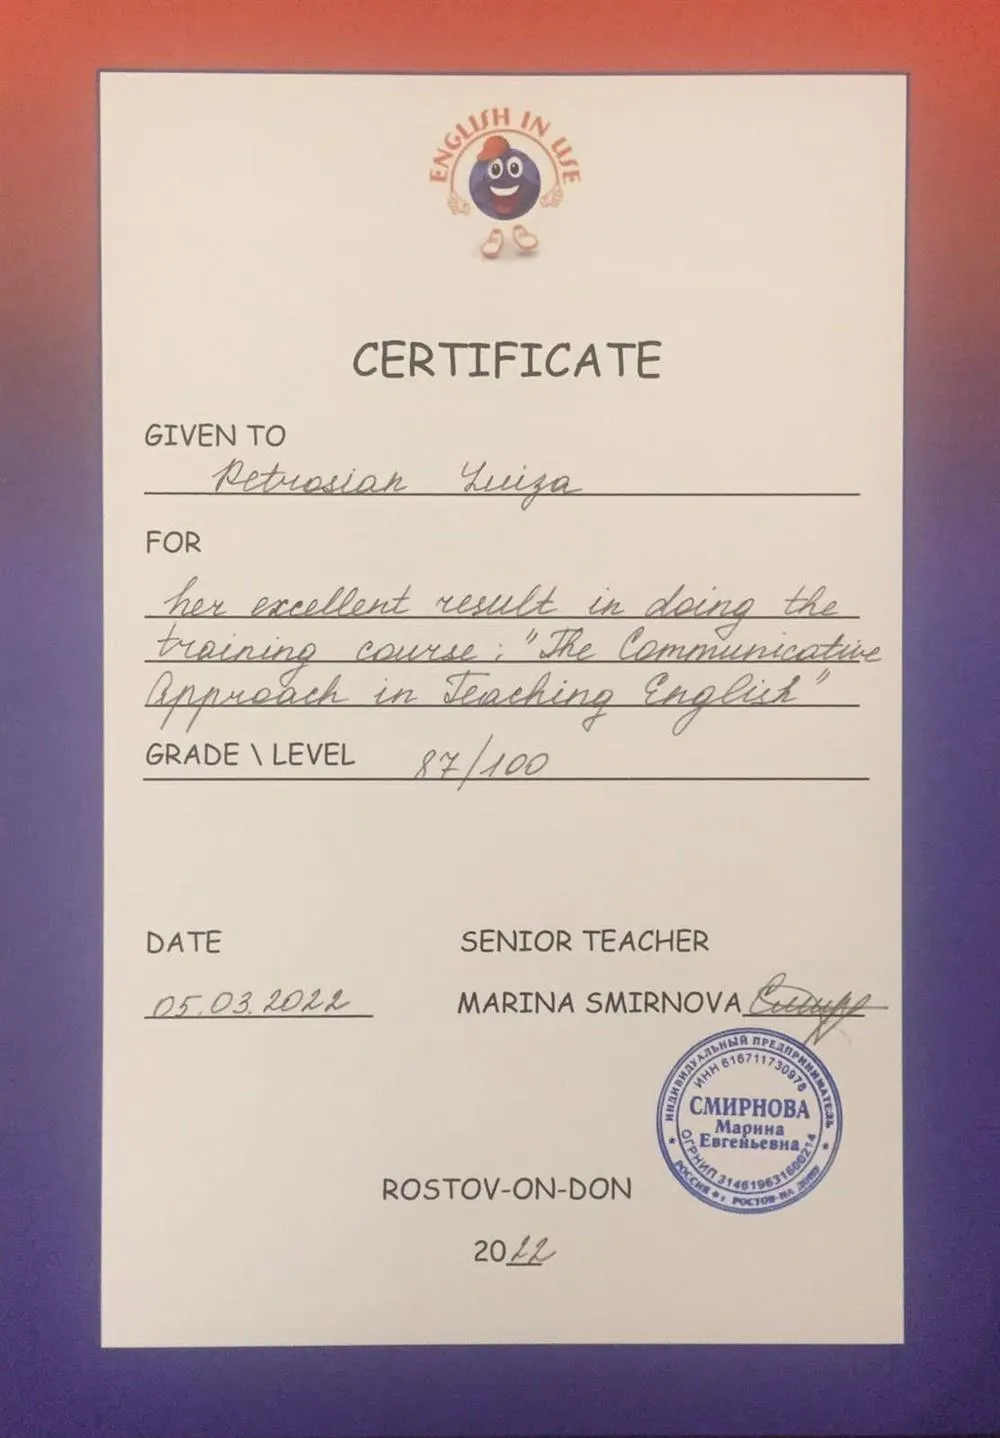 ENGLISH IN USE
CERTIFICATE
GIVEN TO
Petrosian Luiza
FOR
her excellent result in doing the
training course: "The Communicative
Approach in Teaching English"
GRADE \ LEVEL 87/100
DATE
SENIOR TEACHER
05.03.2022
MARINA SMIRNOVA
ИНДИВИДУАЛЬНЫЙ ПРЕДПРИНИМАТЕЛЬ
ИНН 616711730978
СМИРНОВА
Марина
Евгеньевна
ОГРНИП 314619631600214
РОССИЯ г. РОСТОВ-НА-ДОНУ
ROSTOV-ON-DON
2022